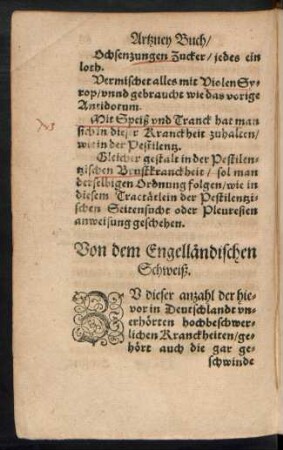 Artzney Buch/
Ochsenzungen Zucker/ jedes ein
loth.
Vermischet alles mit Violen Sy-
rop/ vnnd gebraucht wie das vorige
Antidotum.
Mit Speiß vnd Tranck hat man
sich in dieser Kranckheit zuhalten/
wie in der Pestilentz.
Gleicher gestalt in der Pestilen-
tzischen Brustkranckheit/ sol man
derselbigen Ordnung folgen/ wie in
diesem Tractätlein der Pestilentzi-
schen Seitensucht oder Pleuresien
anweisung geschehen.
Von dem Engelländischen
Schweiß.
ZV dieser anzahl der hie-
vor in Deutschlandt vn-
erhörten hochbeschwer-
lichen Kranckheiten/ ge-
hört auch die gar ge-
schwinde